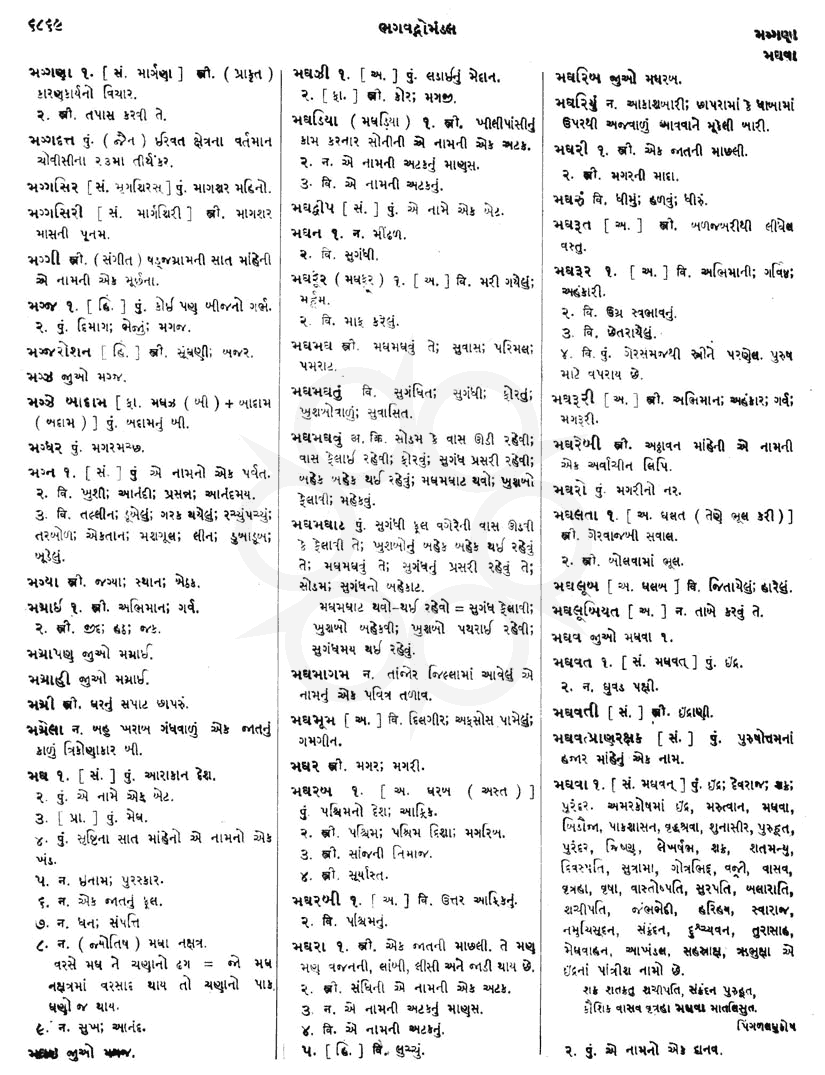 ૬૮૬૯
ભગવદ્ગોમંડલ
મગ્ગણા
મઘવા
મગ્ગણા ૧. [ સં. માર્ગણા ] સ્ત્રી. ( પ્રાકૃત )
કારણકાર્યનો વિચાર.
૨. સ્ત્રી. તપાસ કરવી તે.
મગ્ગદત્ત પું. ( જૈન ) ઈરવત ક્ષેત્રના વર્તમાન
ચોવીસીના ૨૩મા તીર્થંકર.
મગ્ગસિર [ સં. મૃગચિરસ્ ] પું. માગશર મહિનો.
મગ્ગસિરી [ સં. માર્ગશિરી ] સ્ત્રી. માગશર
માસની પૂનમ.
મગ્ગી સ્ત્રી. (સંગીત) ષડ્જગ્રામની સાત માંહેની
એ નામની એક મૂર્છના.
મગ્જ ૧. [ હિં. ] પું. કોઈ પણ બીજનો ગર્ભ.
૨. પું. દિમાગ; ભેજું; મગજ.
મગ્જરોશન [ હિં. ] સ્ત્રી. સૂંઘણી; બજર.
મગ્ઝ જુઓ મગ્જ.
મગ્ઝે બાદામ [ ફા. મઘઝ ( બી ) + બાદામ
( બદામ ) ] પું. બદામનું બી.
મગ્ધર પું. મગરમચ્છ.
મગ્ન ૧. [ સં. ] પું એ નામનો એક પર્વત.
૨. વિ. ખુશી; આનંદી; પ્રસન્ન; આનંદમય.
૩. વિ. તલ્લીન; ડૂબેલું; ગરક થયેલું; રચ્યુંપચ્યું;
તરબોળ; એકતાન; મશગૂલ; લીન; ડુબાડુબ;
ખૂંદેલું.
મગ્યા સ્ત્રી. જગ્યા; સ્થાન; બેઠક.
મગ્રાઈ ૧. સ્ત્રી. અભિમાન; ગર્વ.
૨. સ્ત્રી. જીદ; હઠ; જક.
મગ્રાપણુ જુઓ મગ્રાઈ.
મગ્રાહી જુઓ મગ્રાઈ.
મગ્રી સ્ત્રી. ઘરનું સપાટ છાપરું.
મગ્રેલા ન. બહુ ખરાબ ગંધવાળું એક જાતનું
કાળું ત્રિકોણાકાર બી.
મઘ ૧. [ સં. ] પું. આરાકાન દેશ.
૨. પું. એ નામે એક બેટ.
૩. [ પ્રા. ] પું. મેઘ.
૪. પું. સૃષ્ટિના સાત માંહેનો એ નામનો એક
ખંડ.
૫. ન. ઇનામ; પુરસ્કાર.
૬. ન. એક જાતનું ફૂલ.
૭. ન. ધન; સંપત્તિ
૮. ન. ( જ્યોતિષ ) મઘા નક્ષત્ર.
વરસે મઘ ને ચણાનો ઢગ = જો મઘ
નક્ષત્રમાં વરસાદ થાય તો ચણાનો પાક
ઘણો જ થાય.
૯. ન. સુખ; આનંદ.
જુઓ
મઘઝી ૧. [ અ. ] પું. લડાઈનું મેદાન.
૨. [ ફા. ] સ્ત્રી. કોર; મગજી.
મઘડિયા ( મઘડિયા ) ૧. સ્ત્રી. ખીલીપાંસીનું
કામ કરનાર સોનીની એ નામની એક અટક.
૨. ન. એ નામની અટકનું માણસ.
૩. વિ. એ નામની અટકનું.
મઘદ્વીપ [ સં. ] પું. એ નામે એક બેટ.
મઘન ૧. ન. મીંઢળ.
૨. વિ. સુગંધી.
મઘફૂર ( મઘફર ) ૧. [ અ. ] વિ. મરી ગયેલું;
મર્હૂમ.
૨. વિ. માફ કરેલું.
મઘમઘ સ્ત્રી. મઘમઘવું તે; સુવાસ; પરિમલ;
પમરાટ.
મઘમઘતું વિ. સુગંધિત; સુગંધી; ફોરતું;
ખુશબોવાળું; સુવાસિત.
મઘમઘવું અ. ક્રિ. સોડમ કે વાસ ઊડી રહેવી;
વાસ ફેલાઈ રહેવી; ફોરવું; સુગંધ પ્રસરી રહેવી;
બહેક બહેક થઈ રહેવું; મઘમઘાટ થવો; ખુશબો
ફેલાવી; મહેકવું.
મઘમઘાટ પું. સુગંધી ફૂલ વગેરેની વાસ ઊડવી
કે ફેલાવી તે; ખુશબોનું બહેક બહેક થઈ રહેવું
તે; મઘમઘવું તે; સુગંધનું પ્રસરી રહેવું તે;
સોડમ; સુગંધનો બહેકાટ.
મઘમઘાટ થવો-થઈ રહેવો = સુગંધ ફેલાવી;
ખુશબો બહેકવી; ખુશબો પથરાઈ રહેવી;
સુગંધમય થઈ રહેવું.
મઘમાગમ ન. તાંજોર જિલ્લામાં આવેલું એ
નામનું એક પવિત્ર તળાવ.
મઘમૂમ [ અ. ] વિ. દિલગીર; અફસોસ પામેલું;
ગમગીન.
મઘર સ્ત્રી. મગર; મગરી.
મઘરબ ૧. [ અ. ઘરબ ( અસ્ત ) ]
પું. પશ્ચિમનો દેશ; આફ્રિક.
૨. સ્ત્રી. પશ્ચિમ; પશ્ચિમ દિશા; મગરિબ.
૩. સ્ત્રી. સાંજની નિમાજ.
૪. સ્ત્રી. સૂર્યાસ્ત.
મઘરબી ૧. [ અ. ] વિ. ઉત્તર આફ્રિકનું.
૨. વિ. પશ્ચિમનું.
મઘરા ૧. સ્ત્રી. એક જાતની માછલી. તે મણ
મણ વજનની, લાંબી, લીસી અને જાડી થાય છે.
૨. સ્ત્રી. સંધિની એ નામની એક અટક.
૩. ન. એ નામની અટકનું માણસ.
૪. વિ. એ નામની અટકનું.
૫. [ હિં. ] વિ. લુચ્ચું.
મઘરિબ જુઓ મઘરબ.
મઘરિયું ન. આકાશબારી; છાપરામાં કે ધાબામાં
ઉપરથી અજવાળું આવવાને મૂકેલી બારી.
મઘરી ૧. સ્ત્રી. એક જાતની માછલી.
૨. સ્ત્રી. મગરની માદા.
મઘરું વિ. ધીમું; હળવું; ધીરું.
મઘરૂત [ અ. ] સ્ત્રી. બળજબરીથી લીધેલ
વસ્તુ.
મઘરૂર ૧. [ અ. ] વિ. અભિમાની; ગર્વિષ્ઠ;
અહંકારી.
૨. વિ. ઉગ્ર સ્વભાવનું.
૩. વિ. છેતરાયેલું.
૪. વિ. પું. ગેરસમજથી સ્ત્રીને પરણેલ પુરુષ
માટે વપરાય છે.
મઘરૂરી [ અ. ] સ્ત્રી. અભિમાન; અહંકાર; ગર્વ;
મગરૂરી.
મઘરેબી સ્ત્રી. અઠ્ઠાવન માંહેની એ નામની
એક અર્વાચીન લિપિ.
મઘરો પું. મગરીનો નર.
મઘલતા ૧. [ અ. ઘલત ( તેણે ભૂલ કરી ) ]
સ્ત્રી. ગેરવાજબી સવાલ.
૨. સ્ત્રી. બોલવામાં ભૂલ.
મઘલૂબ [ અ. ઘલબ ] વિ. જિતાયેલું; હારેલું.
મઘલૂબિયત [ અ. ] ન. તાબે કરવું તે.
મઘવ જુઓ મઘવા ૧.
મઘવત ૧. [ સં. મઘવત્ ] પું. ઇંદ્ર.
૨. ન. ઘુવડ પક્ષી.
મઘવતી [ સં. ] સ્ત્રી. ઇંદ્રાણી.
મઘવત્પ્રાણરક્ષક [ સં. ] પું. પુરુષોત્તમનાં
હજાર માંહેનું એક નામ.
મઘવા ૧. [ સં. મઘવન્ ] પું. ઇંદ્ર; દેવરાજ; શક્ર;
પુરંદર. અમરકોષમાં ઇંદ્ર, મરુત્વાન, મઘવા,
બિડૌજા, પાકશાસન, વૃદ્ધશ્રવા, શુનાસીર, પુરુહૂત,
પુરંદર, જિષ્ણુ, લેખર્ષભ, શક્ર, શતમન્યુ,
દિવસ્પતિ, સુત્રામા, ગોત્રભિદ્, વજ્રી, વાસવ,
વૃત્રહા, વૃષા, વાસ્તોષ્પતિ, સુરપતિ, બલારાતિ,
શચીપતિ, જંભભેદી, હરિહય, સ્વારાજ,
નમુચિસૂદન, સંક્રંદન, દુશ્ચ્યવન, તુરાસાહ,
મેઘવાહન, આખંડલ, સહસ્રાક્ષ, ઋભુક્ષા એ
ઇંદ્રનાં પાંત્રીશ નામો છે.
શક્ર શતક્રતુ શચીપતિ, સંક્રંદન પુરુહૂત,
કૌશિક વાસવ વૃત્રહા મઘવા માતલિસૂત.
પિંગળલઘુકોષ
૨. પું. એ નામનો એક દાનવ.